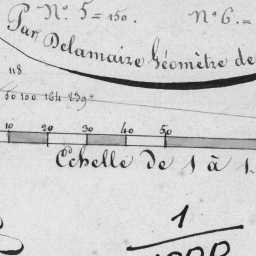 N°. 5 = 150. N° 6. =
Par Delamaize Géomètre de
118
50 100 164 239
10 20 30 40 50
Echelle de 1 à 1
1